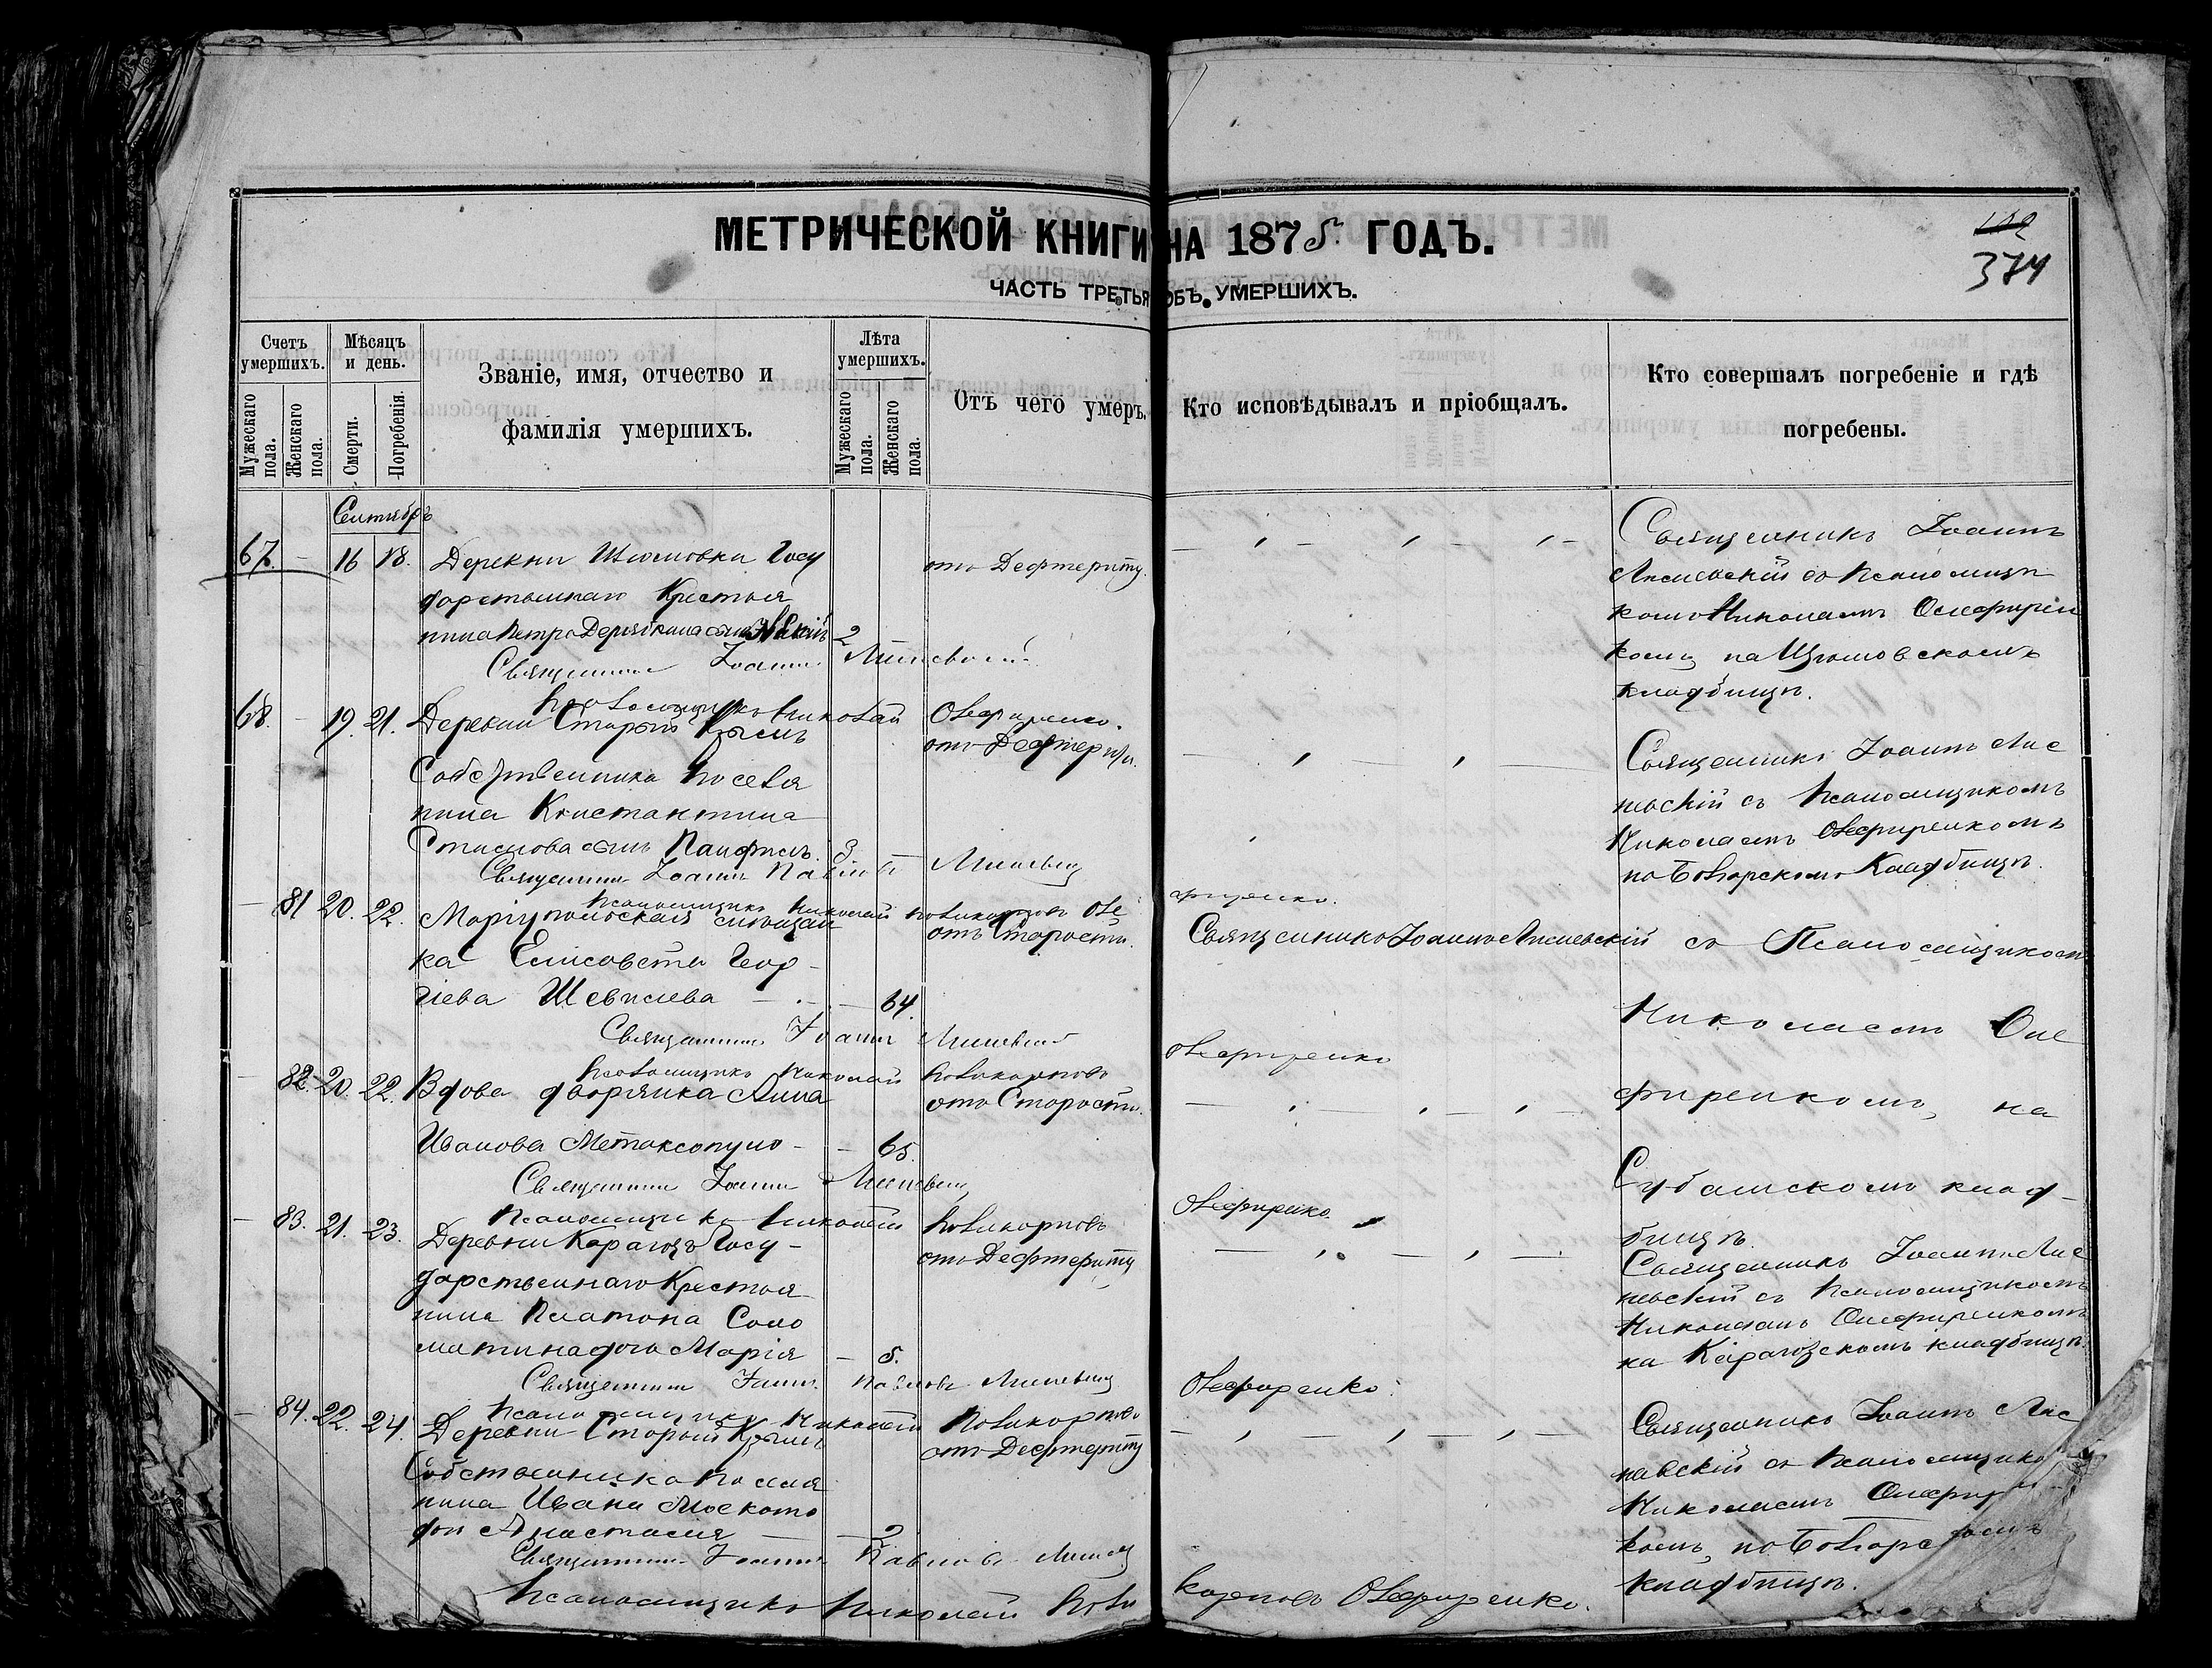 МЕТРИЧЕСКОЙ КНИГИ НА 1875 ГОДЪ.
374
ЧАСТЬ ТРЕТЬЯ ОБЪ УМЕРШИХЪ.
Счетъ умершихъ.
Мужескаго пола.
Женскаго пола.
Мѣсяцъ и день.
Смерти.
Погребенія.
Званіе, имя, отчество и
фамилія умершихъ.
Лѣта умершихъ.
Мужескаго пола.
Женскаго пола.
Отъ чего умеръ.
Кто исповѣдывалъ и пріобщалъ.
Кто совершалъ погребеніе и гдѣ
погребены.
Сентябрь
67. – 16 18. Деревни Госу
дарственнаго Крестья
нина Петра сынъ 2
отъ Дефтериту.
Священникъ Іоаннъ
съ Псаломщи
комъ Николаемъ Олефирен
комъ на
кладбищѣ.
Священникъ Іоаннъ
Псаломщикъ Николай Олефиренко.
68. – 19. 21. Деревни Старый Крымъ
Собственника Поселя
нина Константина
сынъ 3.
отъ Дефтериту.
Священникъ Іоаннъ
съ Псаломщикомъ
Николаемъ Олефиренкомъ
на Болгарскомъ Кладбищѣ.
Священникъ Іоаннъ Павловъ
Псаломщикъ Николай Поликарповъ Олефиренко.
– 81 20. 22. Маріупольская мѣщан
ка Елисавета Геор
гіева 64.
отъ Старости.
Священникъ Іоаннъ съ Псаломщикомъ
Николаемъ Оле
фиренкомъ, на
кладбищѣ.
Священникъ Іоаннъ
Псаломщикъ Николай Поликарповъ Олефиренко
– 82. 20. 22. Вдова дворянка Анна
Иванова Метаксопуло – – 65.
отъ Старости.
Священникъ Іоаннъ
Псаломщикъ Николай Поликарповъ Олефиренко.
– 83. 21. 23. Деревни Карагозъ Госу-
дарственнаго Крестья
нина Платона Соло
матина дочь Марія – 5.
отъ Дефтериту
Священникъ Іоаннъ
съ Псаломщикомъ
Николаемъ Олефиренкомъ
на Карагозскомъ кладбищѣ.
Священникъ Іоаннъ Павловъ
Псаломщикъ Николай Поликарповъ Олефиренко.
– 84. 22. 24. Деревни Старый Крымъ
Собственника Поселя
нина Ивана
дочь Анастасія – 2
отъ Дефтериту
Священникъ Іоаннъ
съ Псаломщико
Николаемъ
комъ, на Болгарскомъ
кладбищѣ.
Священникъ Іоаннъ Павловъ
Псаломщикъ Николай Поликарповъ Олефиренко.